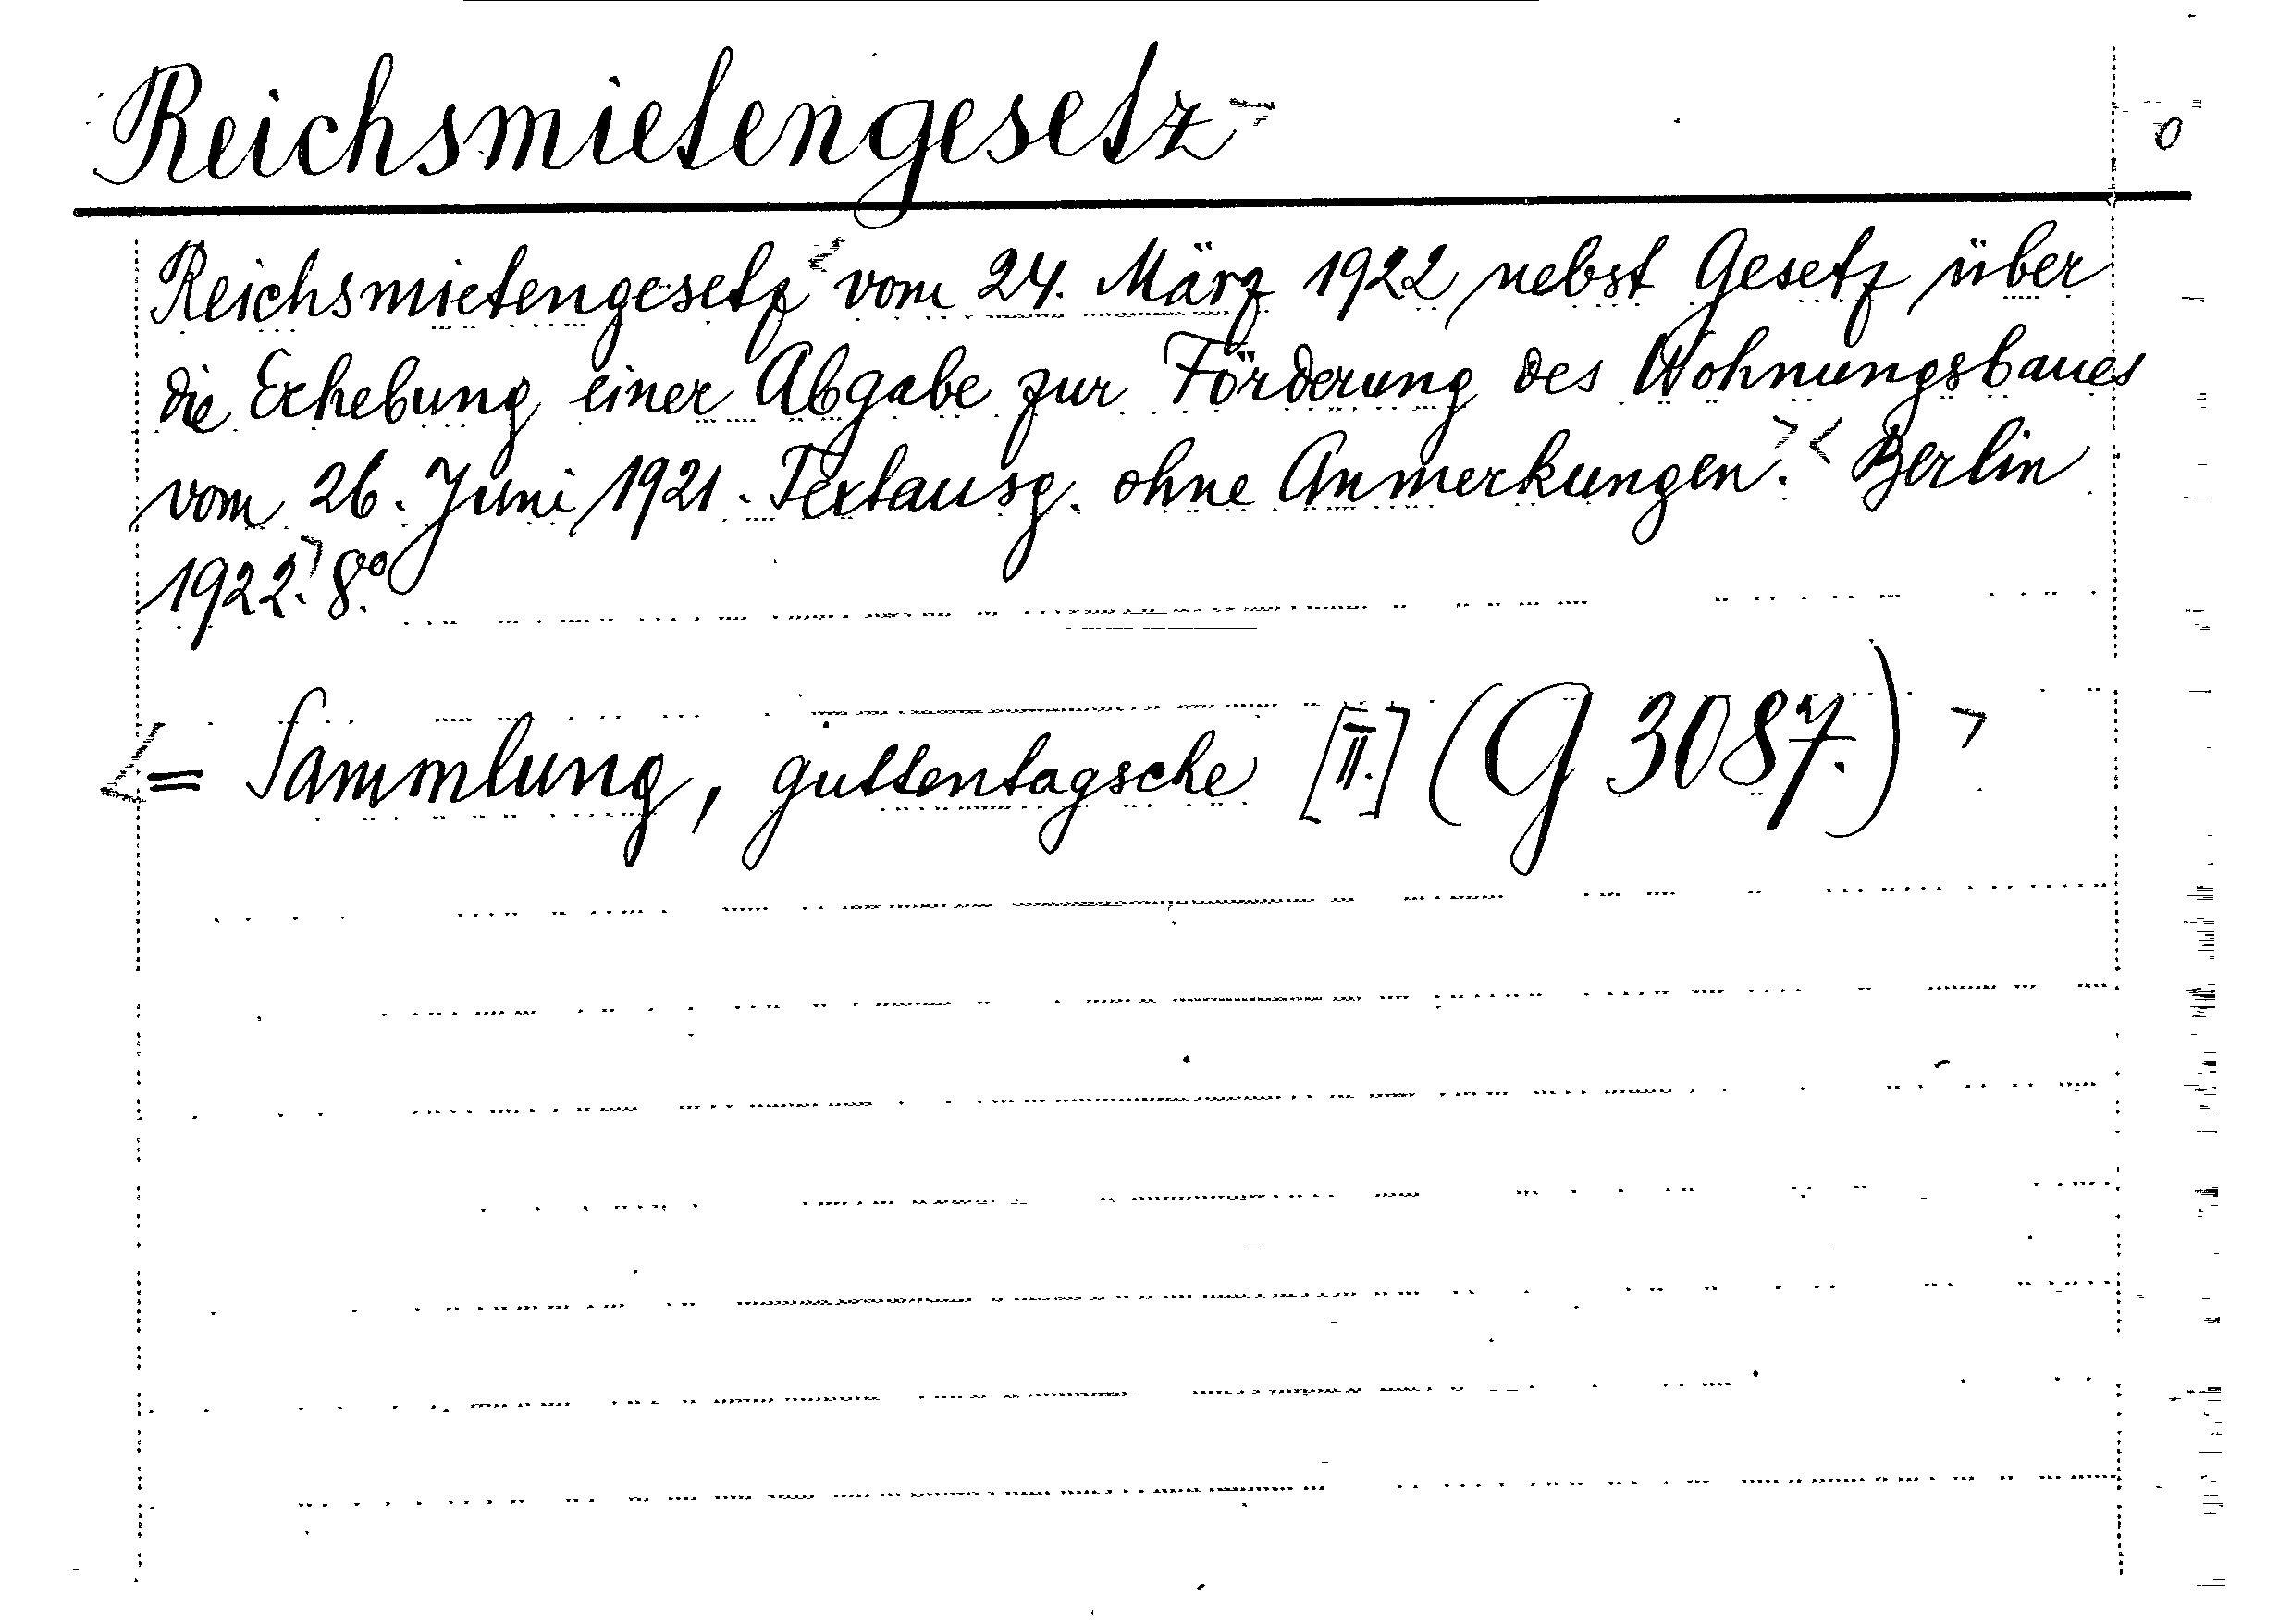 Reichsmietengesetz 0
Reichsmietengesetz vom 24. März 1922 nebst Gesetz über
die Erhebung einer Abgabe zur Förderung des Wohnungsbaues
vom 26. Juni 1921. Textausg. ohne Anmerkungen. Berlin
1922. 8°.
= Sammlung, guttentagsche [II.] (G 3087.)